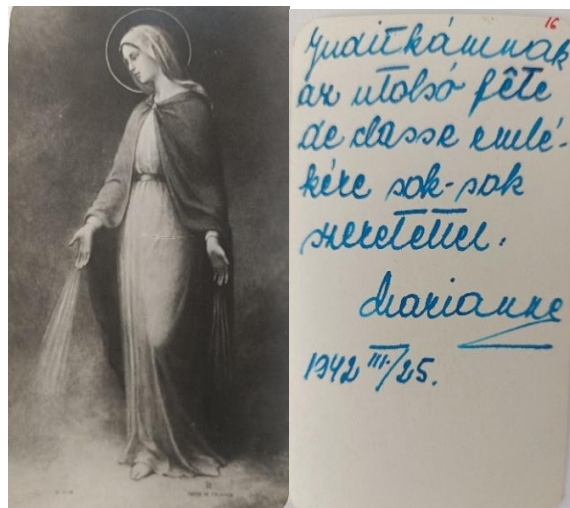 16
Juditkámnak
az utolsó fête
de classe emlé-
kére sok-sok
szeretettel.
Marianne
1942 III./25.